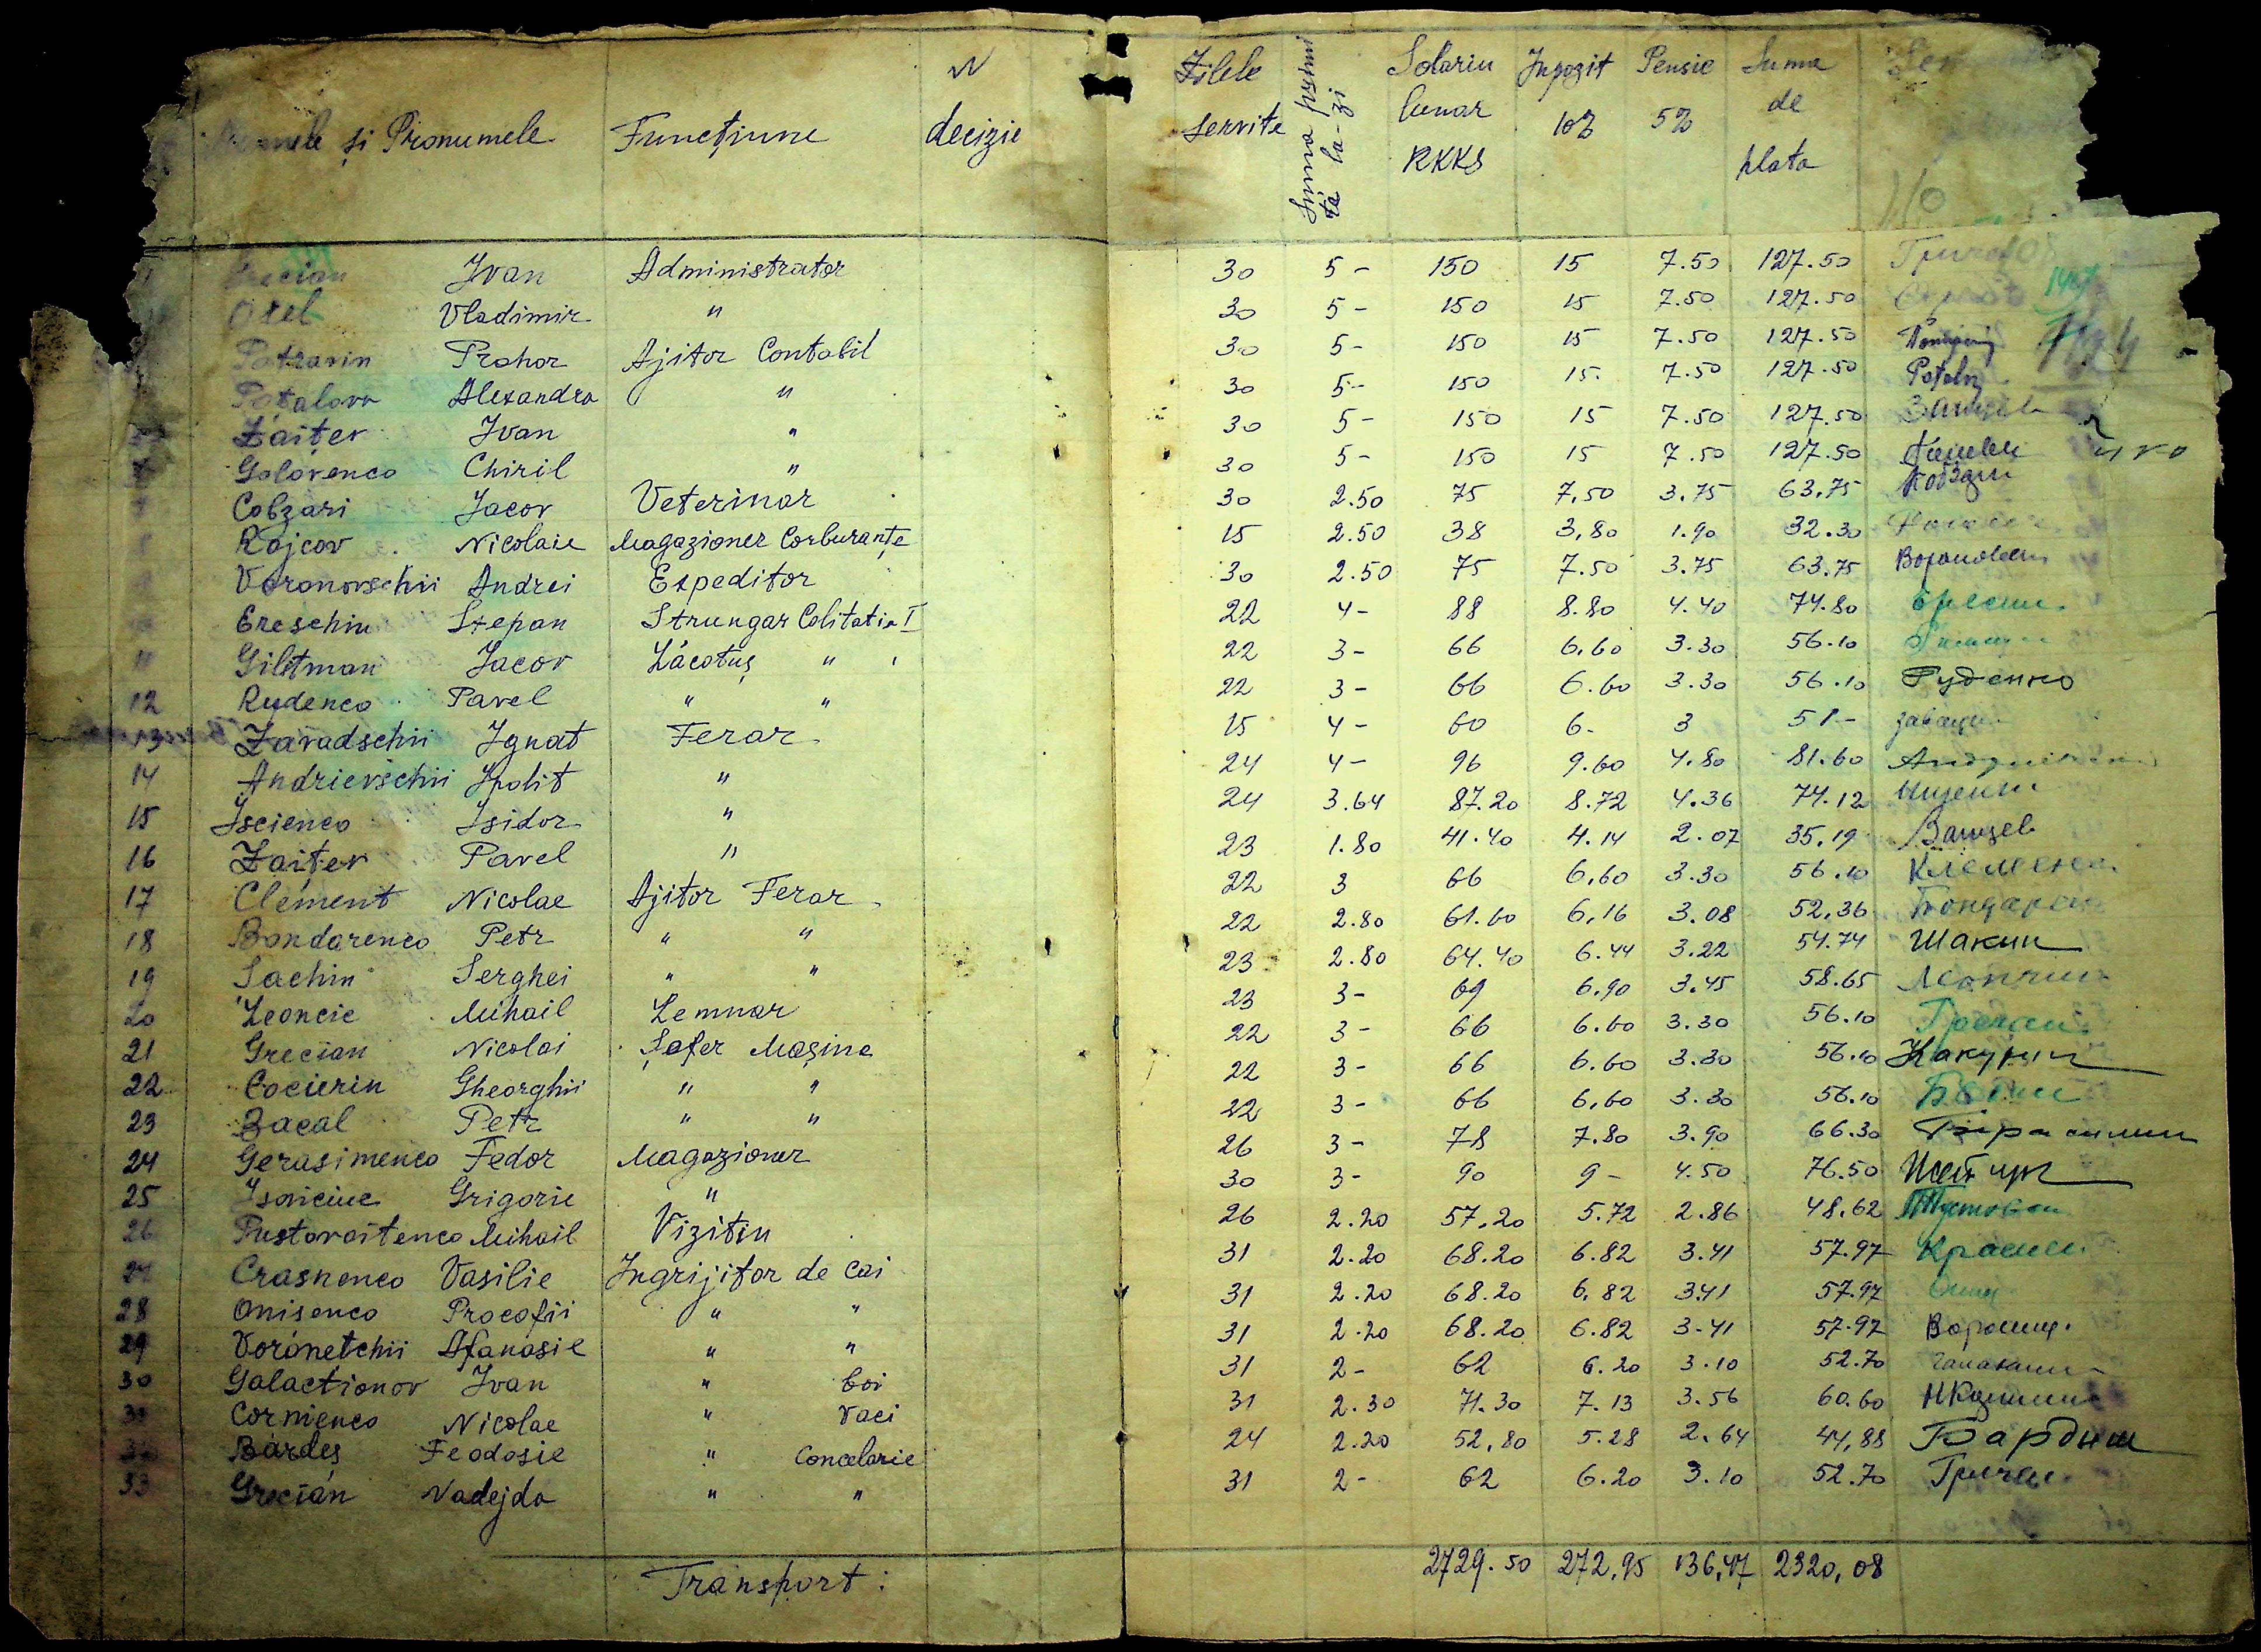 și Pronumele Funcțiune N decizie Zilele servite Suma primita la-zi Solariu lunar RKKS Inpozit 10% Pensie 5% Suma de plata
Grecian Ivan Administrator 30 5- 150 15 7.50 127.50
Orel Vladimir " 30 5- 150 15 7.50 127.50
Patravin Prohor Ajitor Contabil 30 5- 150 15 7.50 127.50
Alexandra " 30 5- 150 15. 7.50 127.50
Zaițev Ivan " 30 5- 150 15 7.50 127.50
Golovenco Chiril " 30 5- 150 15 7.50 127.50
Cobzari Jacov Veterinar 30 2.50 75 7,50 3.75 63.75
8 Rajcov Nicolaie Magazioner Corburanțe 15 2.50 38 3,80 1.90 32.30
Voronovschii Andrei Expeditor 30 2.50 75 7.50 3.75 63.75
Ereschin Stepan Strungar Colitatia I 22 4- 88 8.80 4.40 74.80
11 Giletman Jacov Lăcotuș " 22 3- 66 6,60 3.30 56.10
12 Rudenco Pavel " " 22 3- 66 6.60 3.30 56.10 Руденко
13 Zavadschii Ignat Ferar 15 4- 60 6- 3 51-
14 Andrievschii Ipolit " 24 4- 96 9.60 4.80 81.60
15 Iscienco Isidor " 24 3.64 87.20 8.72 4.36 74.12
16 Zaițev Pavel " 23 1.80 41.40 4.14 2.07 35,19 Заицев
17 Clement Nicolae Ajitor Ferar 22 3 66 6,60 3.30 56.10
18 Bondarenco Petr " " 22 2.80 61.60 6,16 3.08 52,36
19 Sachin Serghei " " 23 2.80 64.40 6.44 3.22 54.74 Шакин
20 Leoncie Mihail Lemnar 23 3- 69 6,90 3.45 58.65
21 Grecian Nicolai Șafer Mașina 22 3- 66 6.60 3.30 56.10
22 Cocierin Gheorghii " " 22 3- 66 6.60 3.30 56.10
23 Bacal Petr " " 22 3- 66 6,60 3.30 56.10
24 Gerasimenco Fedor Magazioner 26 3- 78 7.80 3.90 66.30
25 Grigorie " 30 3- 90 9- 4.50 76.50
26 Pustovoitenco Mihail Vizitiu 26 2.20 57,20 5.72 2.86 48,62
27 Crasnenco Vasilie Ingrijitor de Cai 31 2.20 68.20 6.82 3.41 57.97
28 Onisenco Procofii " " 31 2.20 68.20 6,82 3.41 57.97
29 Voronetchii Afanasie " " 31 2.20 68.20 6.82 3.41 57.97
30 Galactionov Ivan " boi 31 2- 62 6.20 3.10 52.70
Cornienco Nicolae " Vaci 31 2.30 71.30 7.13 3.56 60.60
Bardeș Feodosie " Concelarie 24 2.20 52,80 5.28 2.64 44,88 Бардиш
33 Grecian Nadejda " " 31 2- 62 6.20 3.10 52.70
Transport: 2729.50 272,95 136,47 2320,08